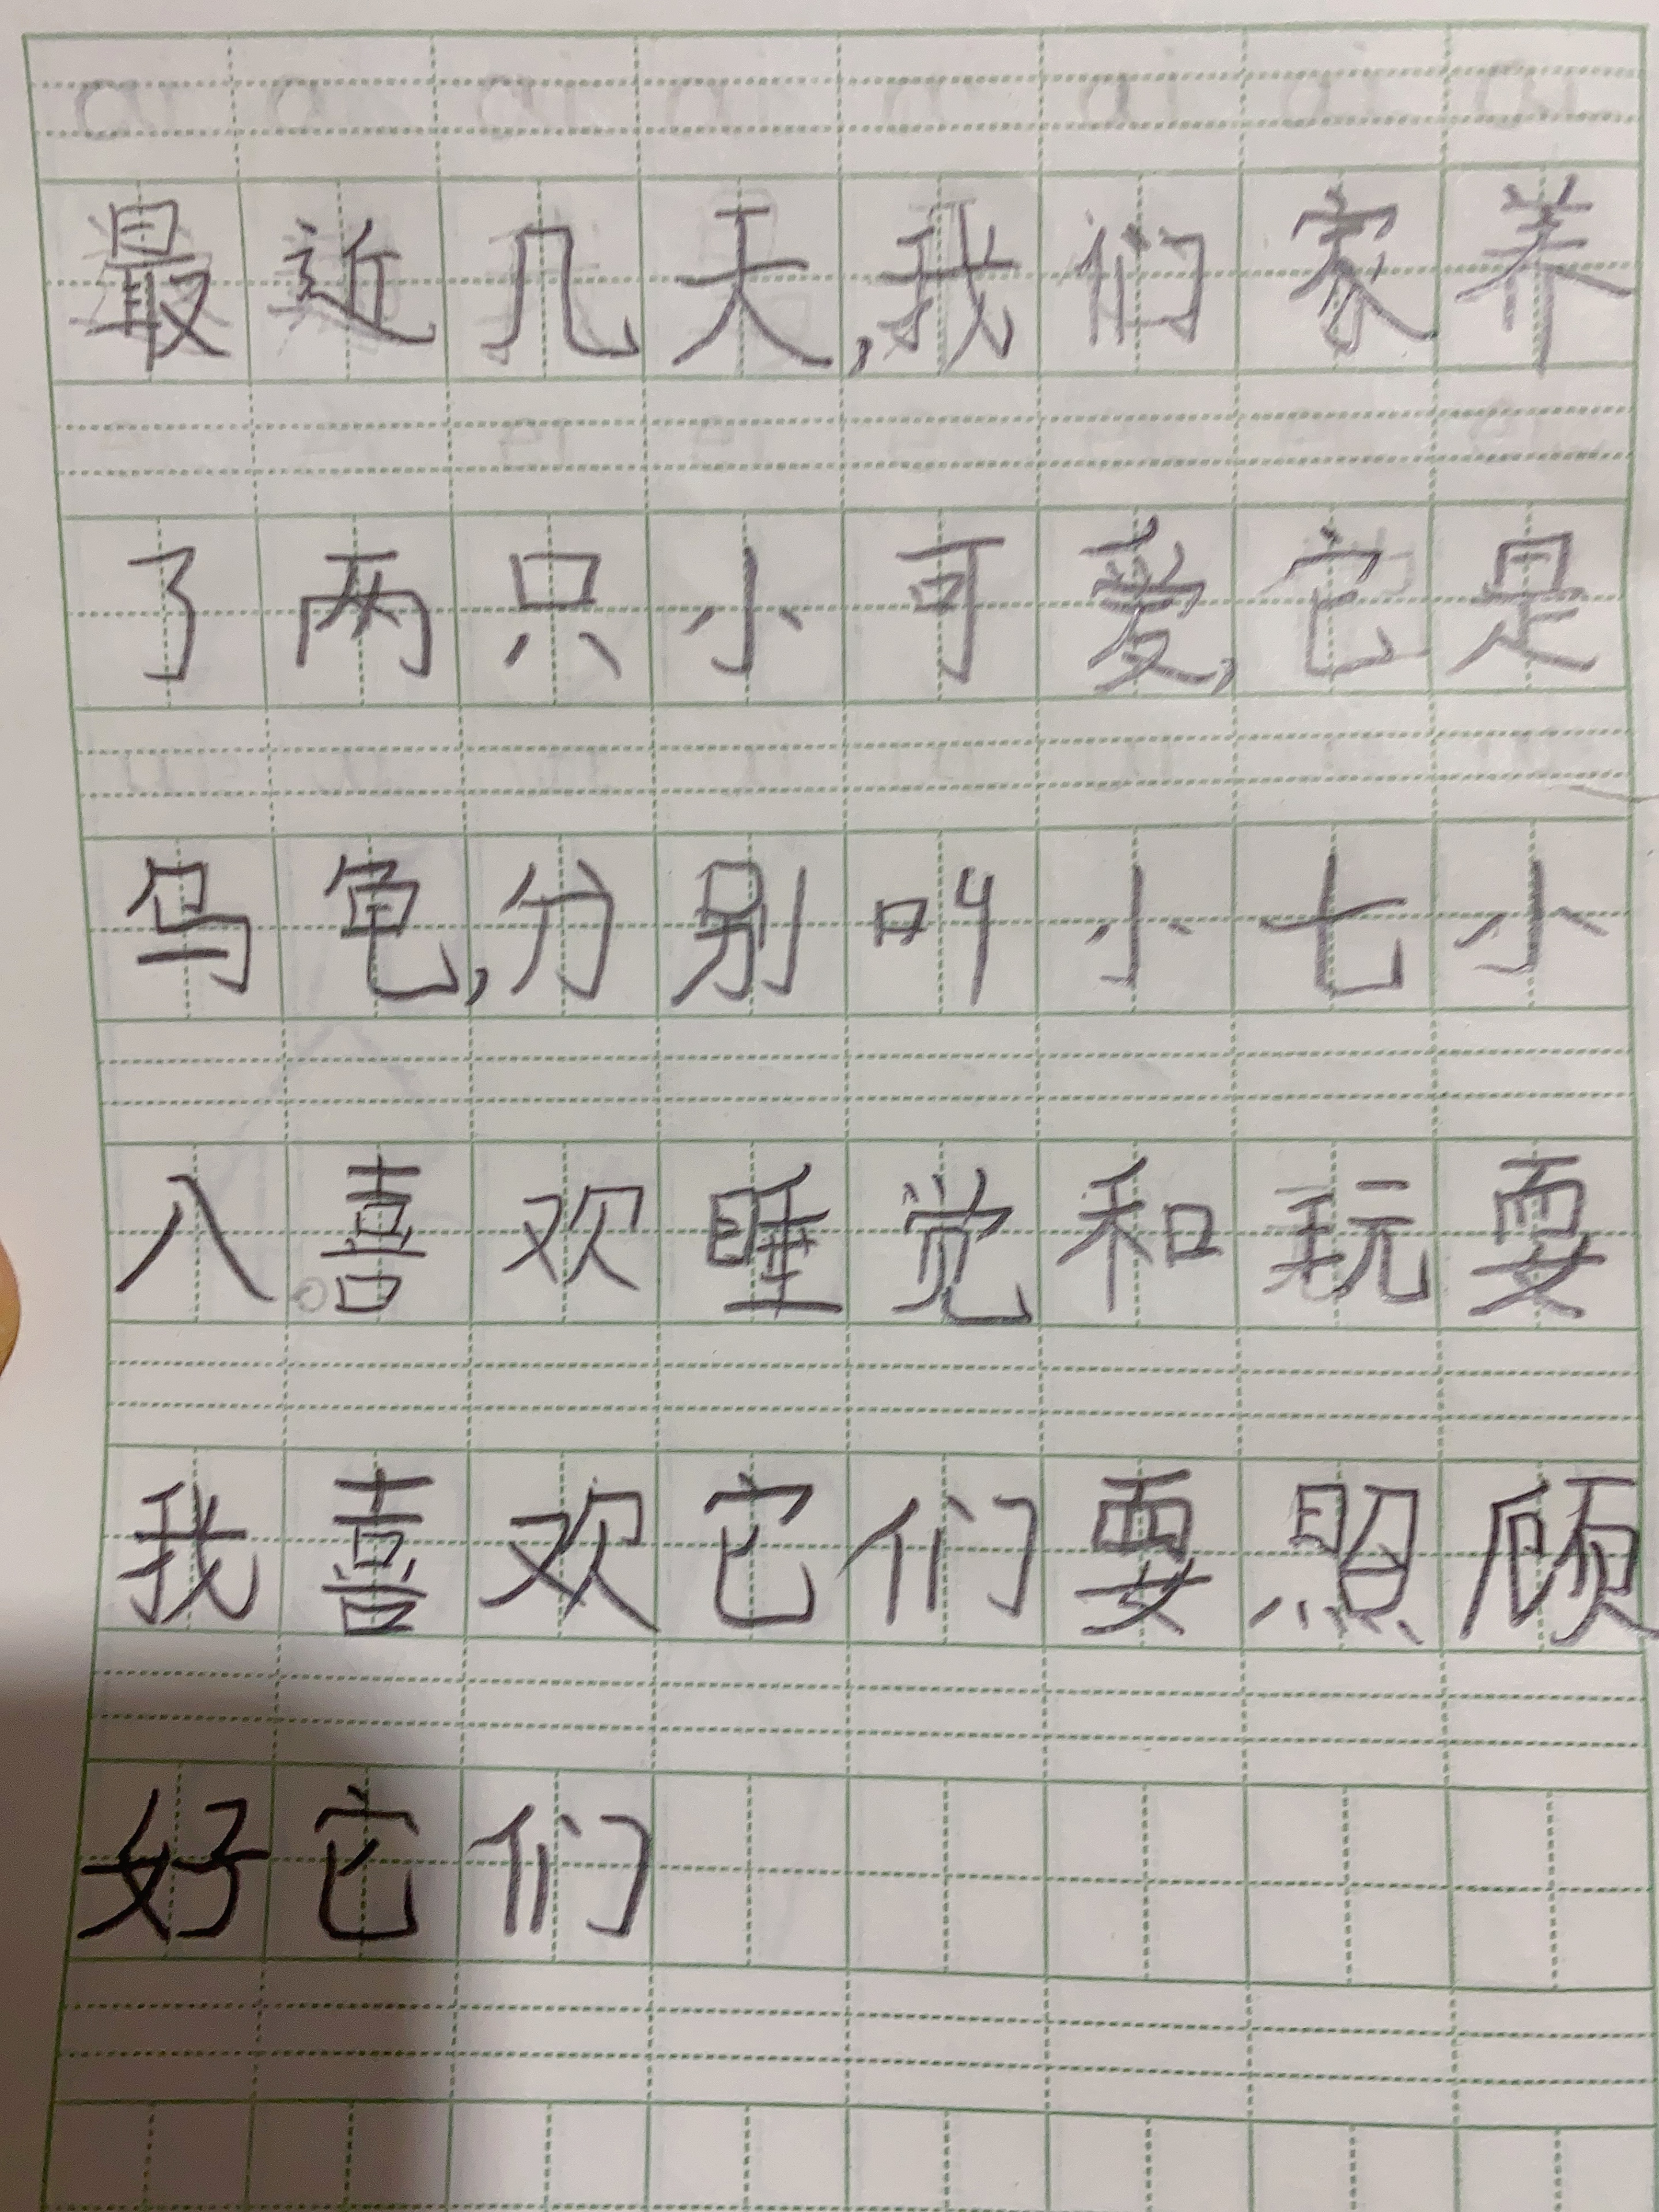 最近几天,我们家养
了两只小可爱,它是
乌龟,分别叫小七小
八。喜欢睡觉和玩耍
我喜欢它们要照顾
好它们